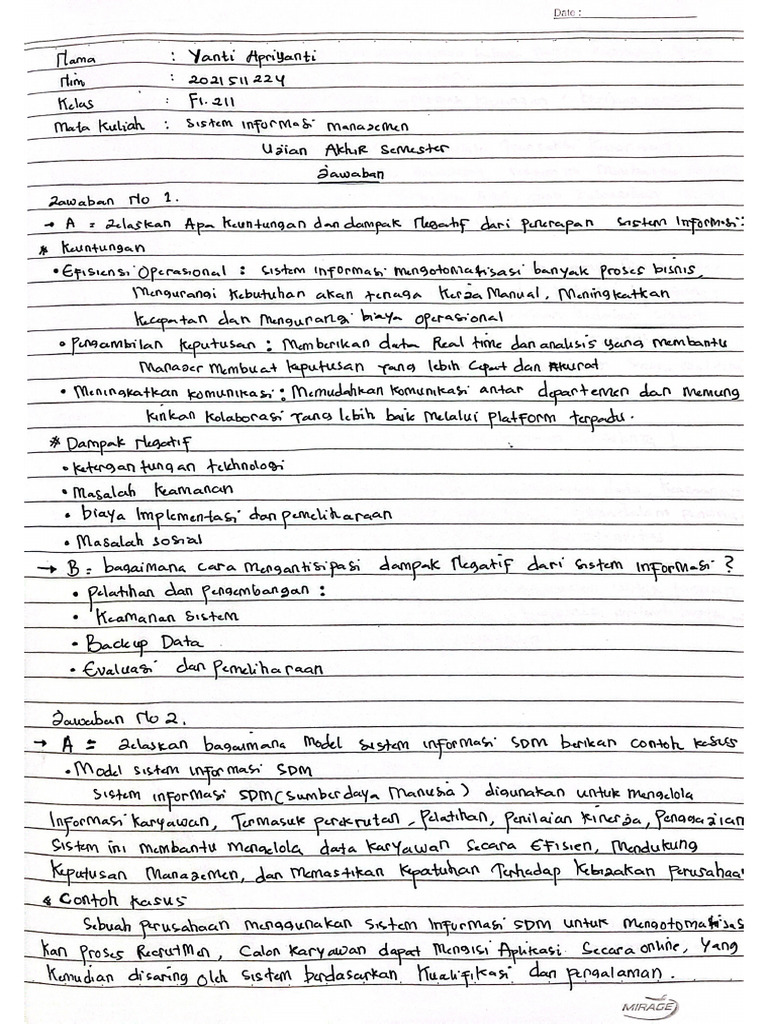 Date :
Nama : Yanti Apriyanti
Nim : 2021511224
Kelas : F1.211
Mata Kuliah : Sistem Informasi Manajemen
Ujian Akhir Semester
Jawaban
Jawaban No 1.
→ A = Jelaskan Apa Keuntungan dan dampak Negatif dari penerapan sistem Informasi:
* Keuntungan
• Efisiensi Operasional : Sistem Informasi mengotomatisasi banyak proses bisnis,
Mengurangi Kebutuhan akan tenaga Kerja Manual, Meningkatkan
Kecepatan dan mengurangi biaya operasional
• Pengambilan Keputusan : Memberikan data Real time dan analisis yang membantu
Manajer Membuat Keputusan yang lebih Cepat dan Akurat
• Meningkatkan Komunikasi : Memudahkan Komunikasi antar departemen dan memung
kinkan Kolaborasi yang lebih baik melalui platform terpadu.
* Dampak Negatif
• Ketergantungan teknologi
• Masalah Keamanan
• biaya Implementasi dan pemeliharaan
• Masalah sosial
→ B = bagaimana cara mengantisipasi dampak Negatif dari sistem Informasi ?
• Pelatihan dan Pengembangan :
• Keamanan Sistem
• Backup Data
• Evaluasi dan Pemeliharaan
Jawaban No 2.
→ A = Jelaskan bagaimana Model sistem informasi SDM berikan contoh kasus
• Model sistem informasi SDM
Sistem informasi SDM (Sumber daya Manusia) digunakan untuk mengelola
Informasi Karyawan, Termasuk perekrutan, Pelatihan, Penilaian Kinerja, Penggajian
Sistem ini membantu Mengelola data Karyawan Secara Efisien, Mendukung
Keputusan Manajemen, dan Memastikan Kepatuhan Terhadap Kebijakan Perusahaa
* Contoh Kasus
Sebuah perusahaan menggunakan Sistem Informasi SDM untuk Mengotomatisas
kan Proses Recrutmen, Calon Karyawan dapat Mengisi Aplikasi Secara online, yang
Kemudian disaring oleh sistem berdasarkan Kualifikasi dan pengalaman.
MIRAGE